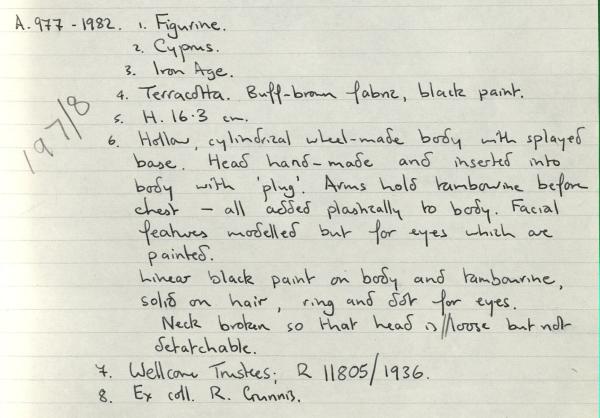 A.977-1982. 1. Figurine.
2. Cyprus.
3. Iron Age.
4. Terracotta. Buff-brown fabric, black paint.
5. H. 16.3 cm.
197/8
6. Hollow, cylindrical wheel-made body with splayed
base. Head hand-made and inserted into
body with 'plug'. Arms hold tambourine before
chest – all added plastically to body. Facial
features modelled but for eyes which are
painted.
Linear black paint on body and tambourine,
solid on hair, ring and dot for eyes.
Neck broken so that head is loose but not
detatchable.
7. Wellcome Trustees; R 11805/1936.
8. Ex coll. R. Gunnis.